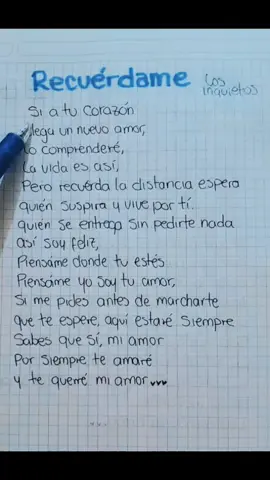 Recuérdame
Los inquietos
Si a tu corazón
llega un nuevo amor,
Lo comprenderé,
La vida es así,
Pero recuerda la distancia espera
quién suspira y vive por tí...
quién se entrega sin pedirte nada
así soy feliz,
Piensáme donde tu estés
Piensáme yo soy tu amor,
Si me pides antes de marcharte
que te espere, aquí estaré siempre
Sabes que sí, mi amor
Por siempre te amaré
y te querré mi amor